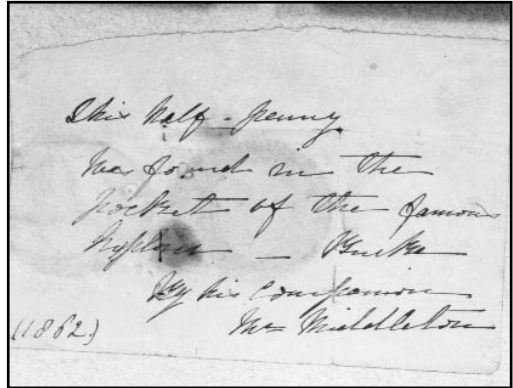 This half-penny
was found in the
pocket of the famous
Explorer — Burke
By his Companion
Mr Middleton
(1862)